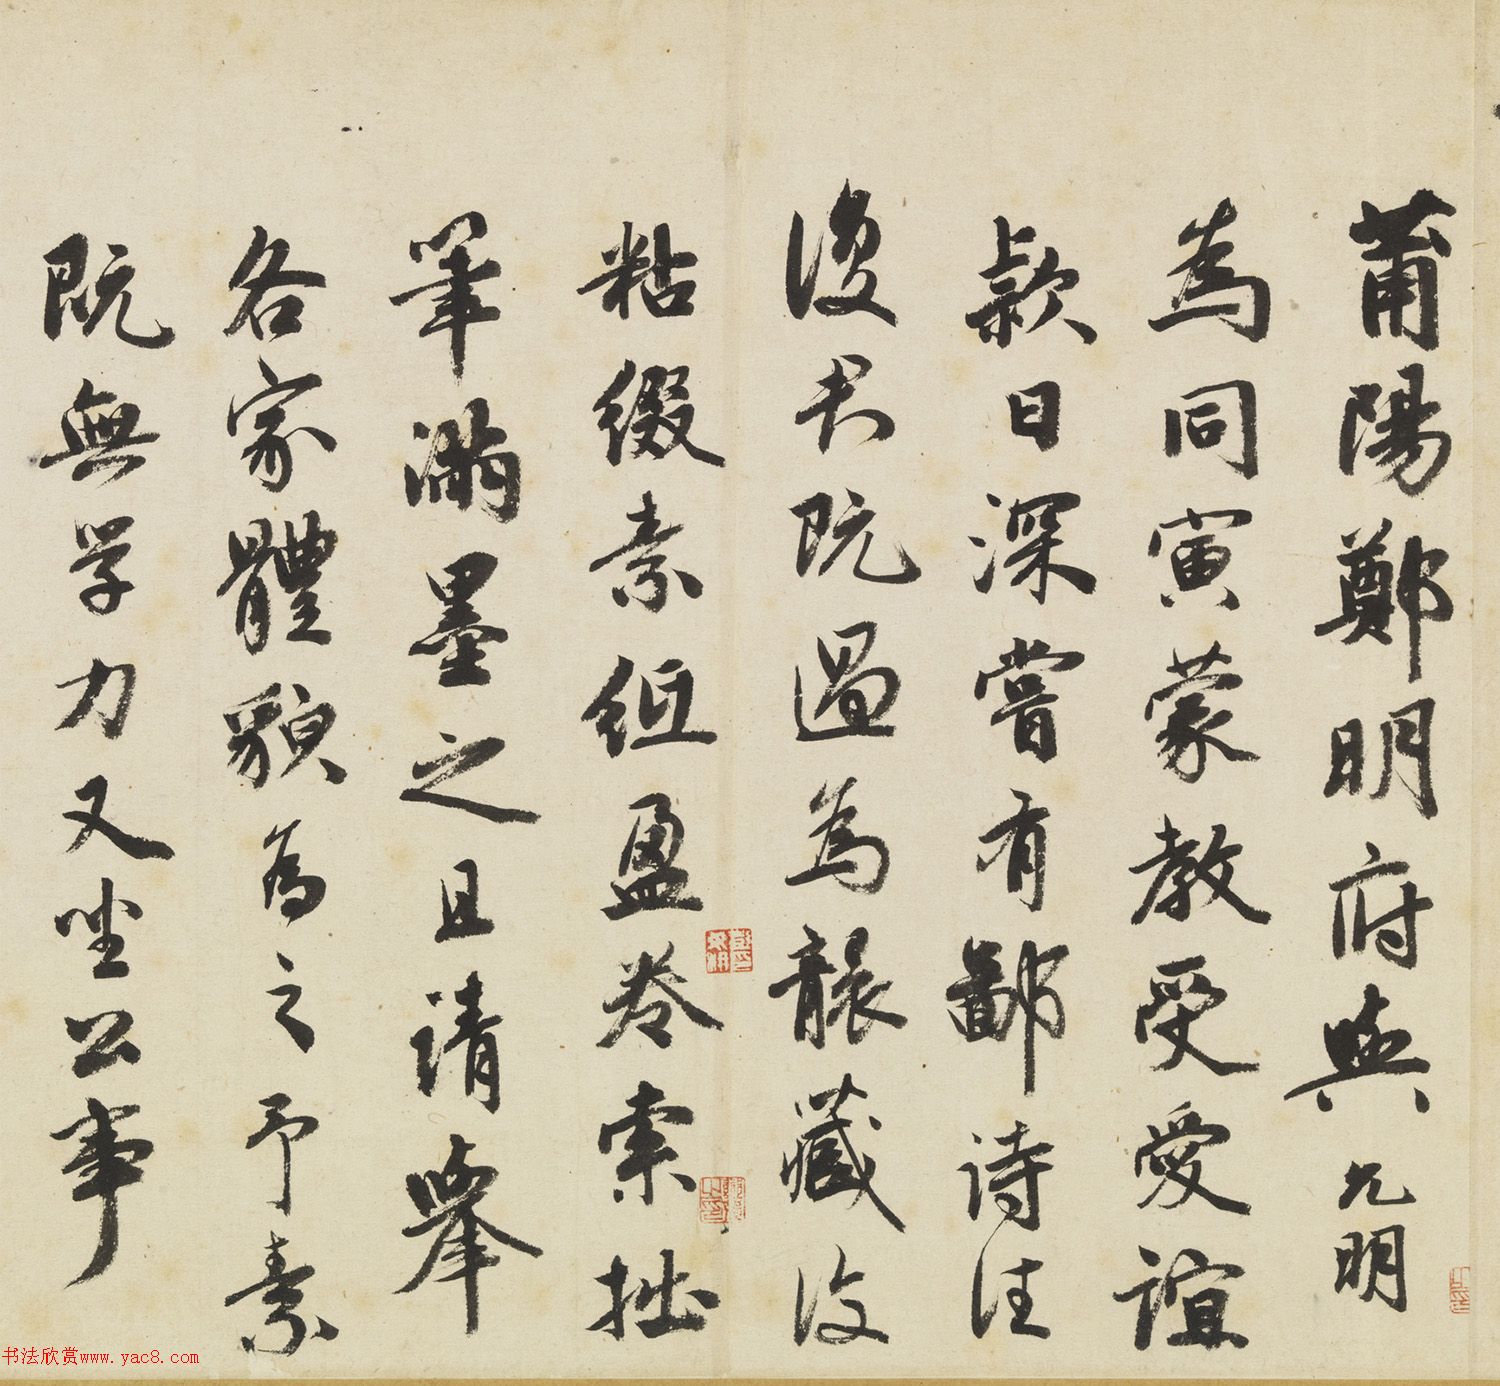 莆陽鄭明府與允明
為同寅蒙教受愛誼
欵日深嘗有鄙詩往
復君既過為襲藏復
粘綴素紙盈卷索拙
筆滿墨之且請舉
各家體貌為之予素
既無学力又坐公事
书法欣赏www.yac8.com